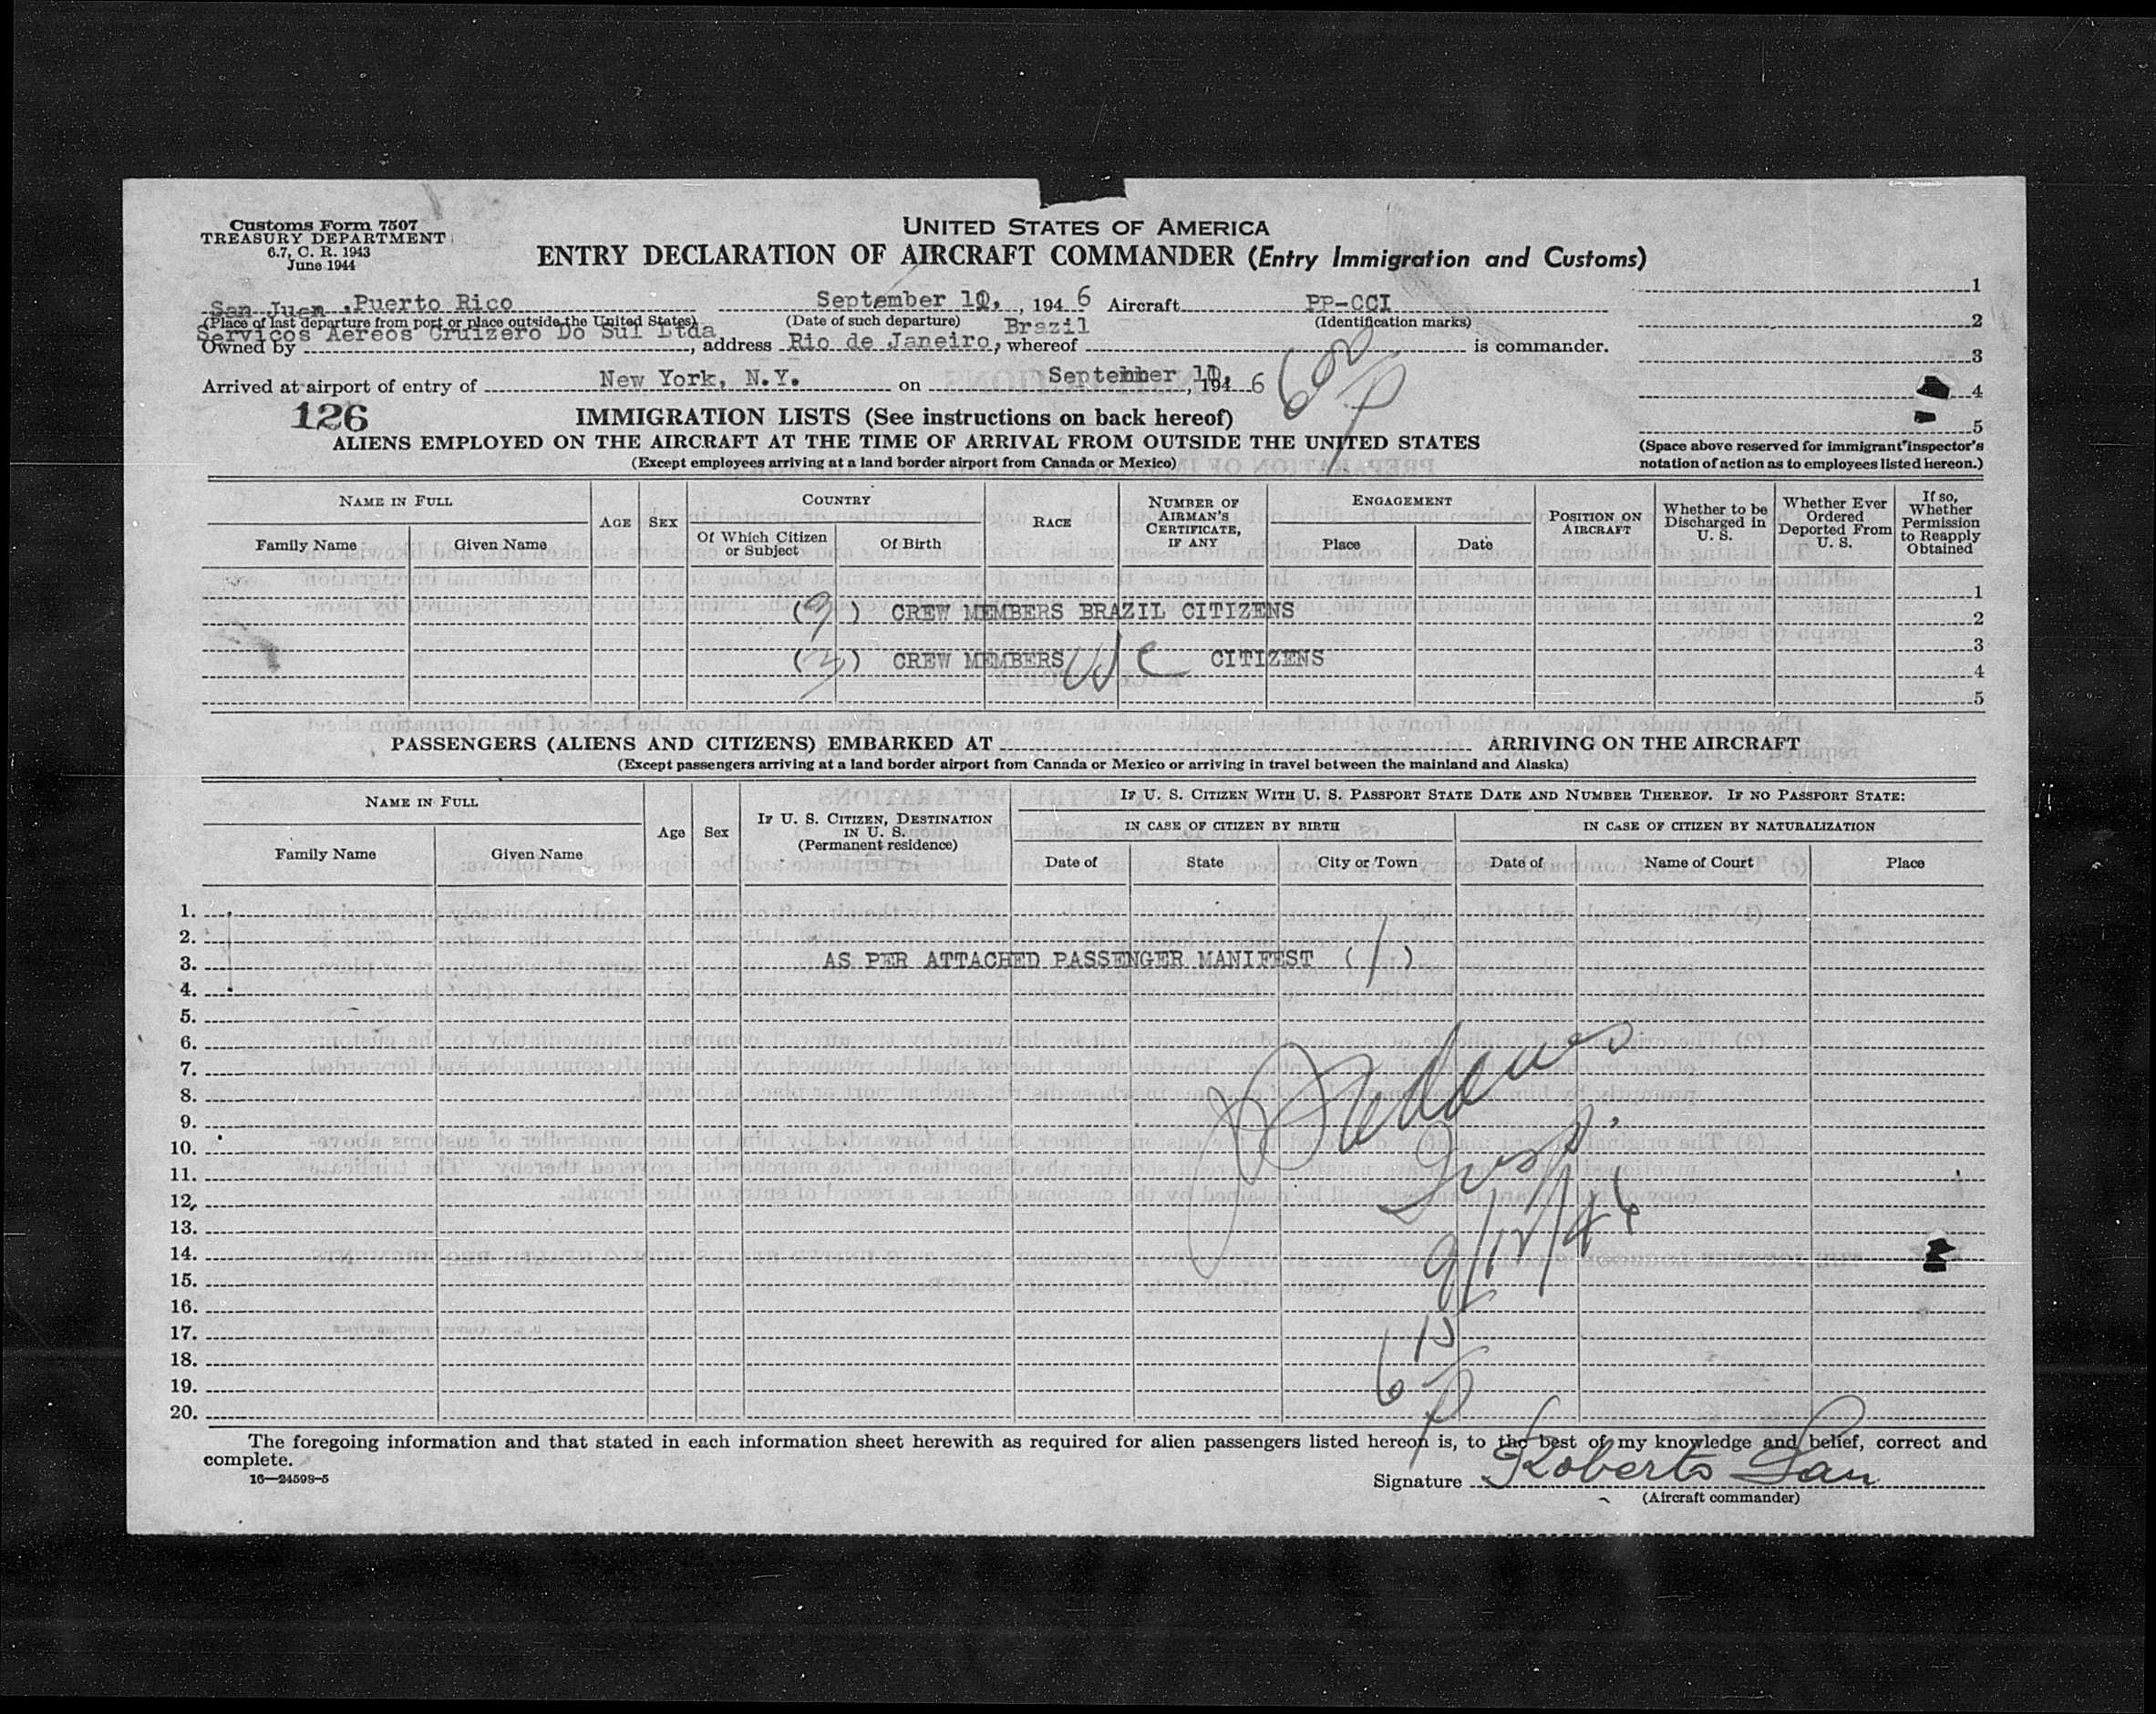 Customs Form 7507
TREASURY DEPARTMENT
6.7, C. R. 1943
June 1944
UNITED STATES OF AMERICA
ENTRY DECLARATION OF AIRCRAFT COMMANDER (Entry Immigration and Customs)
San Juan ,Puerto Rico September , 194 6 Aircraft PP-CCI
(Place of last departure from port or place outside the United States) (Date of such departure) (Identification marks)
Servicos Aereos Cruizero Do Sul Ltda Brazil
Owned by , address Rio de Janeiro, whereof is commander.
Arrived at airport of entry of New York, N.Y. on September , 194 6
1
2
3
4
5
(Space above reserved for immigrant inspector's
notation of action as to employees listed hereon.)
126
IMMIGRATION LISTS (See instructions on back hereof)
ALIENS EMPLOYED ON THE AIRCRAFT AT THE TIME OF ARRIVAL FROM OUTSIDE THE UNITED STATES
(Except employees arriving at a land border airport from Canada or Mexico)
NAME IN FULL
Family Name
Given Name
AGE
SEX
COUNTRY
Of Which Citizen or Subject
Of Birth
RACE
NUMBER OF AIRMAN'S CERTIFICATE, IF ANY
ENGAGEMENT
Place
Date
POSITION ON AIRCRAFT
Whether to be Discharged in U. S.
Whether Ever Ordered Deported From U. S.
If so, Whether Permission to Reapply Obtained
1
( 9 ) CREW MEMBERS BRAZIL CITIZENS 2
3
( 3 ) CREW MEMBERS CITIZENS 4
5
PASSENGERS (ALIENS AND CITIZENS) EMBARKED AT ARRIVING ON THE AIRCRAFT
(Except passengers arriving at a land border airport from Canada or Mexico or arriving in travel between the mainland and Alaska)
NAME IN FULL
Family Name
Given Name
Age
Sex
IF U. S. CITIZEN, DESTINATION IN U. S.
(Permanent residence)
IF U. S. CITIZEN WITH U. S. PASSPORT STATE DATE AND NUMBER THEREOF. IF NO PASSPORT STATE:
IN CASE OF CITIZEN BY BIRTH
Date of
State
City or Town
IN CASE OF CITIZEN BY NATURALIZATION
Date of
Name of Court
Place
1.
2.
3. AS PER ATTACHED PASSENGER MANIFEST ( / )
4.
5.
6.
7.
8.
9.
10.
Insp.
11.
12.
13.
9/12/46
14.
15.
16.
17.
18.
19.
20.
The foregoing information and that stated in each information sheet herewith as required for alien passengers listed hereon is, to the best of my knowledge and belief, correct and
complete.
16—24598-5
Signature Roberto
(Aircraft commander)